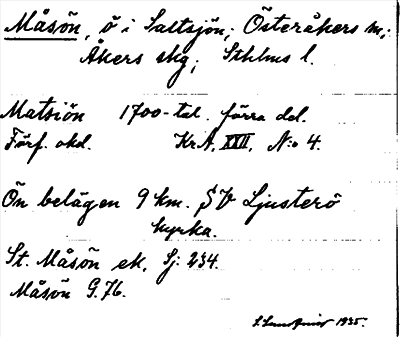 Måsön, ö i Saltsjön; Österåkers sn;
Åkers skg; Sthlms l.
Matsiön 1700-tal. förra del.
Förf. okd. Kr.A. XXII, N:o 4.
Ön belägen 9 km. SV Ljusterö
kyrka.
St. Måsön ek. Sj: 234.
Måsön G. 76.
1935.